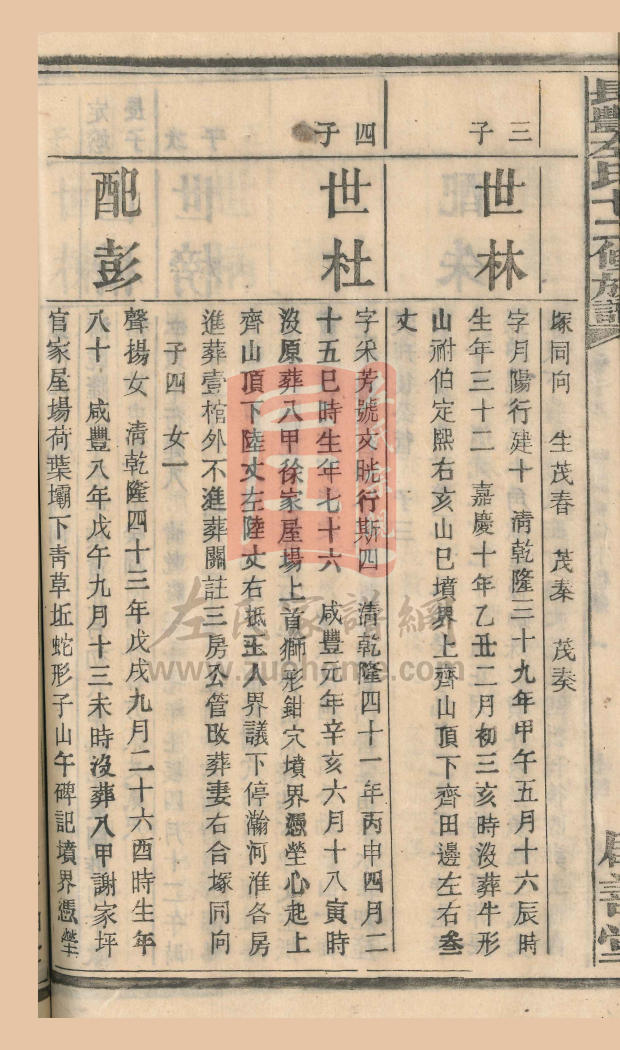 長豐左氏十二修族譜
塚同向 生茂春 茂秦 茂奏
三子
世林
字月陽行建十 清乾隆三十九年甲午五月十六辰時
生年三十二 嘉慶十年乙丑二月初三亥時沒葬牛形
山祔伯定熙右亥山巳墳界上齊山頂下齊田邊左右叄
丈
四子
世杜
字釆芳號文晄行斯四 清乾隆四十一年丙申四月二
十五巳時生年七十六 咸豐元年辛亥六月十八寅時
沒原葬八甲徐家屋場上首獅形鉗穴墳界憑塋心起上
齊山頂下陸丈左陸丈右抵玉人界議下停瀚河淮各房
進葬壹棺外不進葬關註三房公管改葬妻右合塚同向
子四 女一
配彭
聲揚女 清乾隆四十三年戊戌九月二十六酉時生年
八十 咸豐八年戊午九月十三未時沒葬八甲謝家坪
官家屋場荷葉壩下靑草坵蛇形子山午碑記墳界憑塋
左氏家譜網
www.zuohome.com